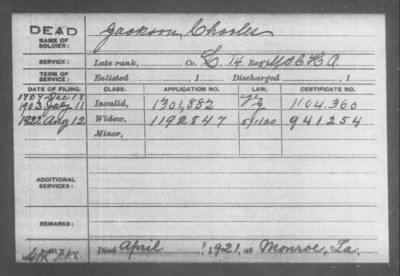 DEAD
NAME OF SOLDIER: Jackson, Charles
SERVICE: Late rank, Co. L. 14 Reg't U.S.C.H.A.
TERM OF SERVICE: Enlisted , 1 Discharged , 1
DATE OF FILING. CLASS. APPLICATION NO. LAW. CERTIFICATE NO.
Dec 18
1903 July 11 Invalid, 1301,852 1104.360
1922 Aug 12 Widow, 1192847 5/1/20 941254
Minor,
ADDITIONAL SERVICES:
REMARKS:
Died April , 1921, at Monroe, La.